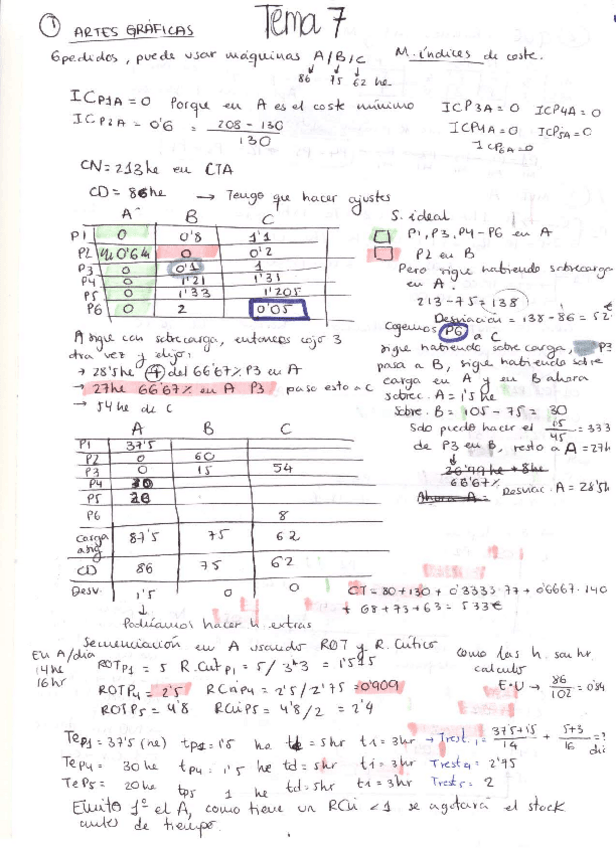 Tema 7
① ARTES GRÁFICAS
6 pedidos, puede usar máquinas A/B/C M. índices de coste.
86 75 62 he
ICP1A = 0 Porque en A es el coste mínimo ICP3A = 0 ICP4A = 0
ICP2A = 0'6 = 208 - 130 / 130 ICP4A = 0 ICP5A = 0
ICP6A = 0
CN = 213 he en CTA
CD = 86 he → Tengo que hacer ajustes
A B C
P1 0 0'8 1'1
P2 0'6 0 0'2
P3 0 0'1 1
P4 0 1'21 1'31
P5 0 1'33 1'205
P6 0 2 0'05
S. ideal
P1, P3, P4-P6 en A
P2 en B
Pero sigue habiendo sobrecarga
en A:
213-75 = 138
Desviación = 138-86 = 52
Cogemos P6 a C
sigue habiendo sobrecarga, P3
pasa a B, sigue habiendo sobre
carga en A y en B ahora
sobrec. A = 1'5 he
Sobre. B = 105 - 75 = 30
Solo puedo hacer el 15/45 = 333
de P3 en B, resto a A = 27h
66'67%
Desviac. A = 28'5h
A sigue con sobrecarga, entonces cojo 3
otra vez y elijo:
→ 28'5he del 66'67% P3 en A
→ 27he 66'67% en A P3 paso esto a C
→ 54he de C
A B C
P1 37'5
P2 0 60
P3 0 15 54
P4 30
P5 20
P6 8
Carga asig 87'5 75 62
CD 86 75 62
Desv. 1'5 0 0
CT = 80 + 130 + 0'3333·77 + 0'6667·140
+ 68 + 73 + 63 = 533€
Podríamos hacer h. extras
Secuenciación en A usando ROT y R. Crítico
En A/día
14he
16hr
ROTP1 = 5 R.CritP1 = 5/3'3 = 1'515
ROTP4 = 2'5 RCriP4 = 2'5/2'75 = 0'909
ROTP5 = 4'8 RCriP5 = 4'8/2 = 2'4
como las h. son hr
calculo
E·U → 86/102 = 0'84
TeP1 = 37'5 (he) tp1 = 1'5 he td = 5hr ti = 3hr → Trest.1 = 37'5+1'5 / 14 + 5+3 / 16 = ? dí
TeP4 = 30 he tp4 = 1'5 he td = 5hr ti = 3hr Trest4 = 2'75
TeP5 = 20he tp5 1 he td = 5hr ti = 3hr Trest5 = 2
Emito 1º el A, como tiene un RCri < 1 se agotará el stock
antes de tiempo.